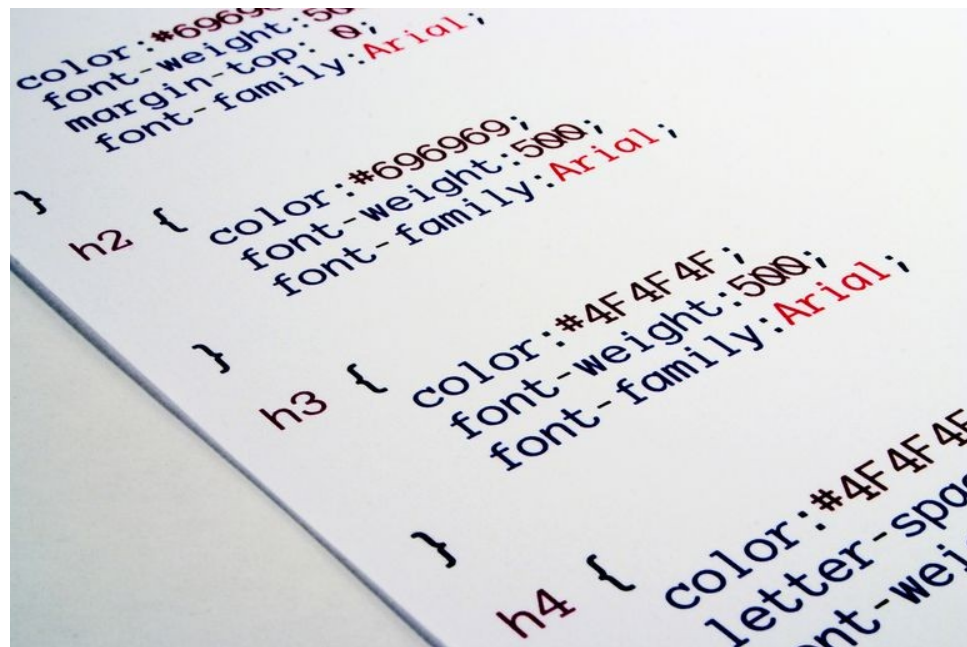 color:#6969
font-weight:50
margin-top: 0;
font-family:Arial;
}
h2 { color:#696969;
font-weight:500;
font-family:Arial;
}
h3 { color:#4F4F4F;
font-weight:500;
font-family:Arial;
}
h4 { color:#4F4F4F
letter-spa